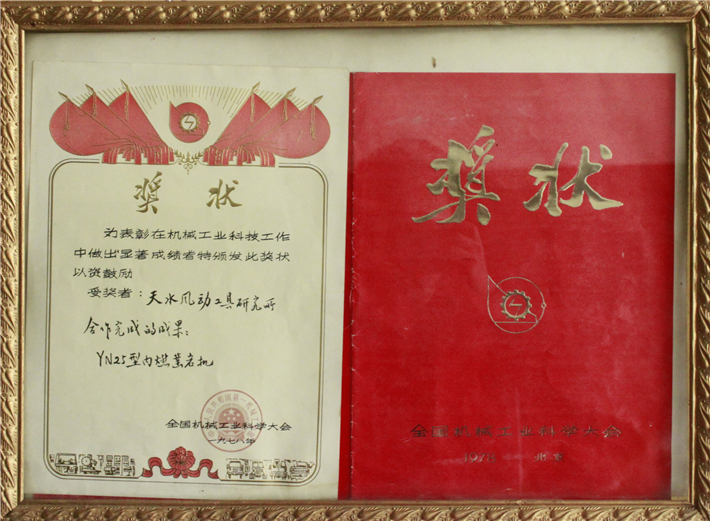 奖状
为表彰在机械工业科技工作
中做出显著成绩者特颁发此奖状
以资鼓励
受奖者：天水风动工具研究所
合作完成的成果：
YN25型内燃凿岩机
全国机械工业科学大会
一九七八年
奖状
全国机械工业科学大会
1978 北京